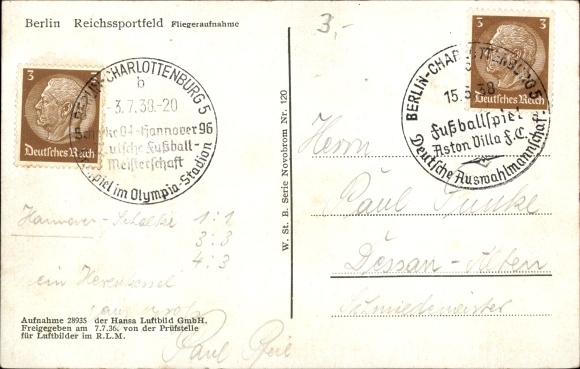 Berlin Reichssportfeld Fliegeraufnahme
3,-
3 3
Deutsches Reich
BERLIN-CHARLOTTENBURG 5
b
3.7.38.-20
04-Hannover 96
Fußball-
Meisterschaft
im Olympia-Stadion
3 3
Deutsches Reich
BERLIN-CHARLOTTENBURG 5
15.5.38
Fußballspiel
Aston Villa F.C.
Deutsche Auswahlmannschaft
W. St. B. Serie Novobrom Nr. 120
Herrn
Paul
Dessau-Alten
Schmiedemeister
Hannover-Schalke 1:1
3:3
4:3
ein
Paul Pfeil
Aufnahme 28935 der Hansa Luftbild GmbH.
Freigegeben am 7.7.36. von der Prüfstelle
für Luftbilder im R.L.M.